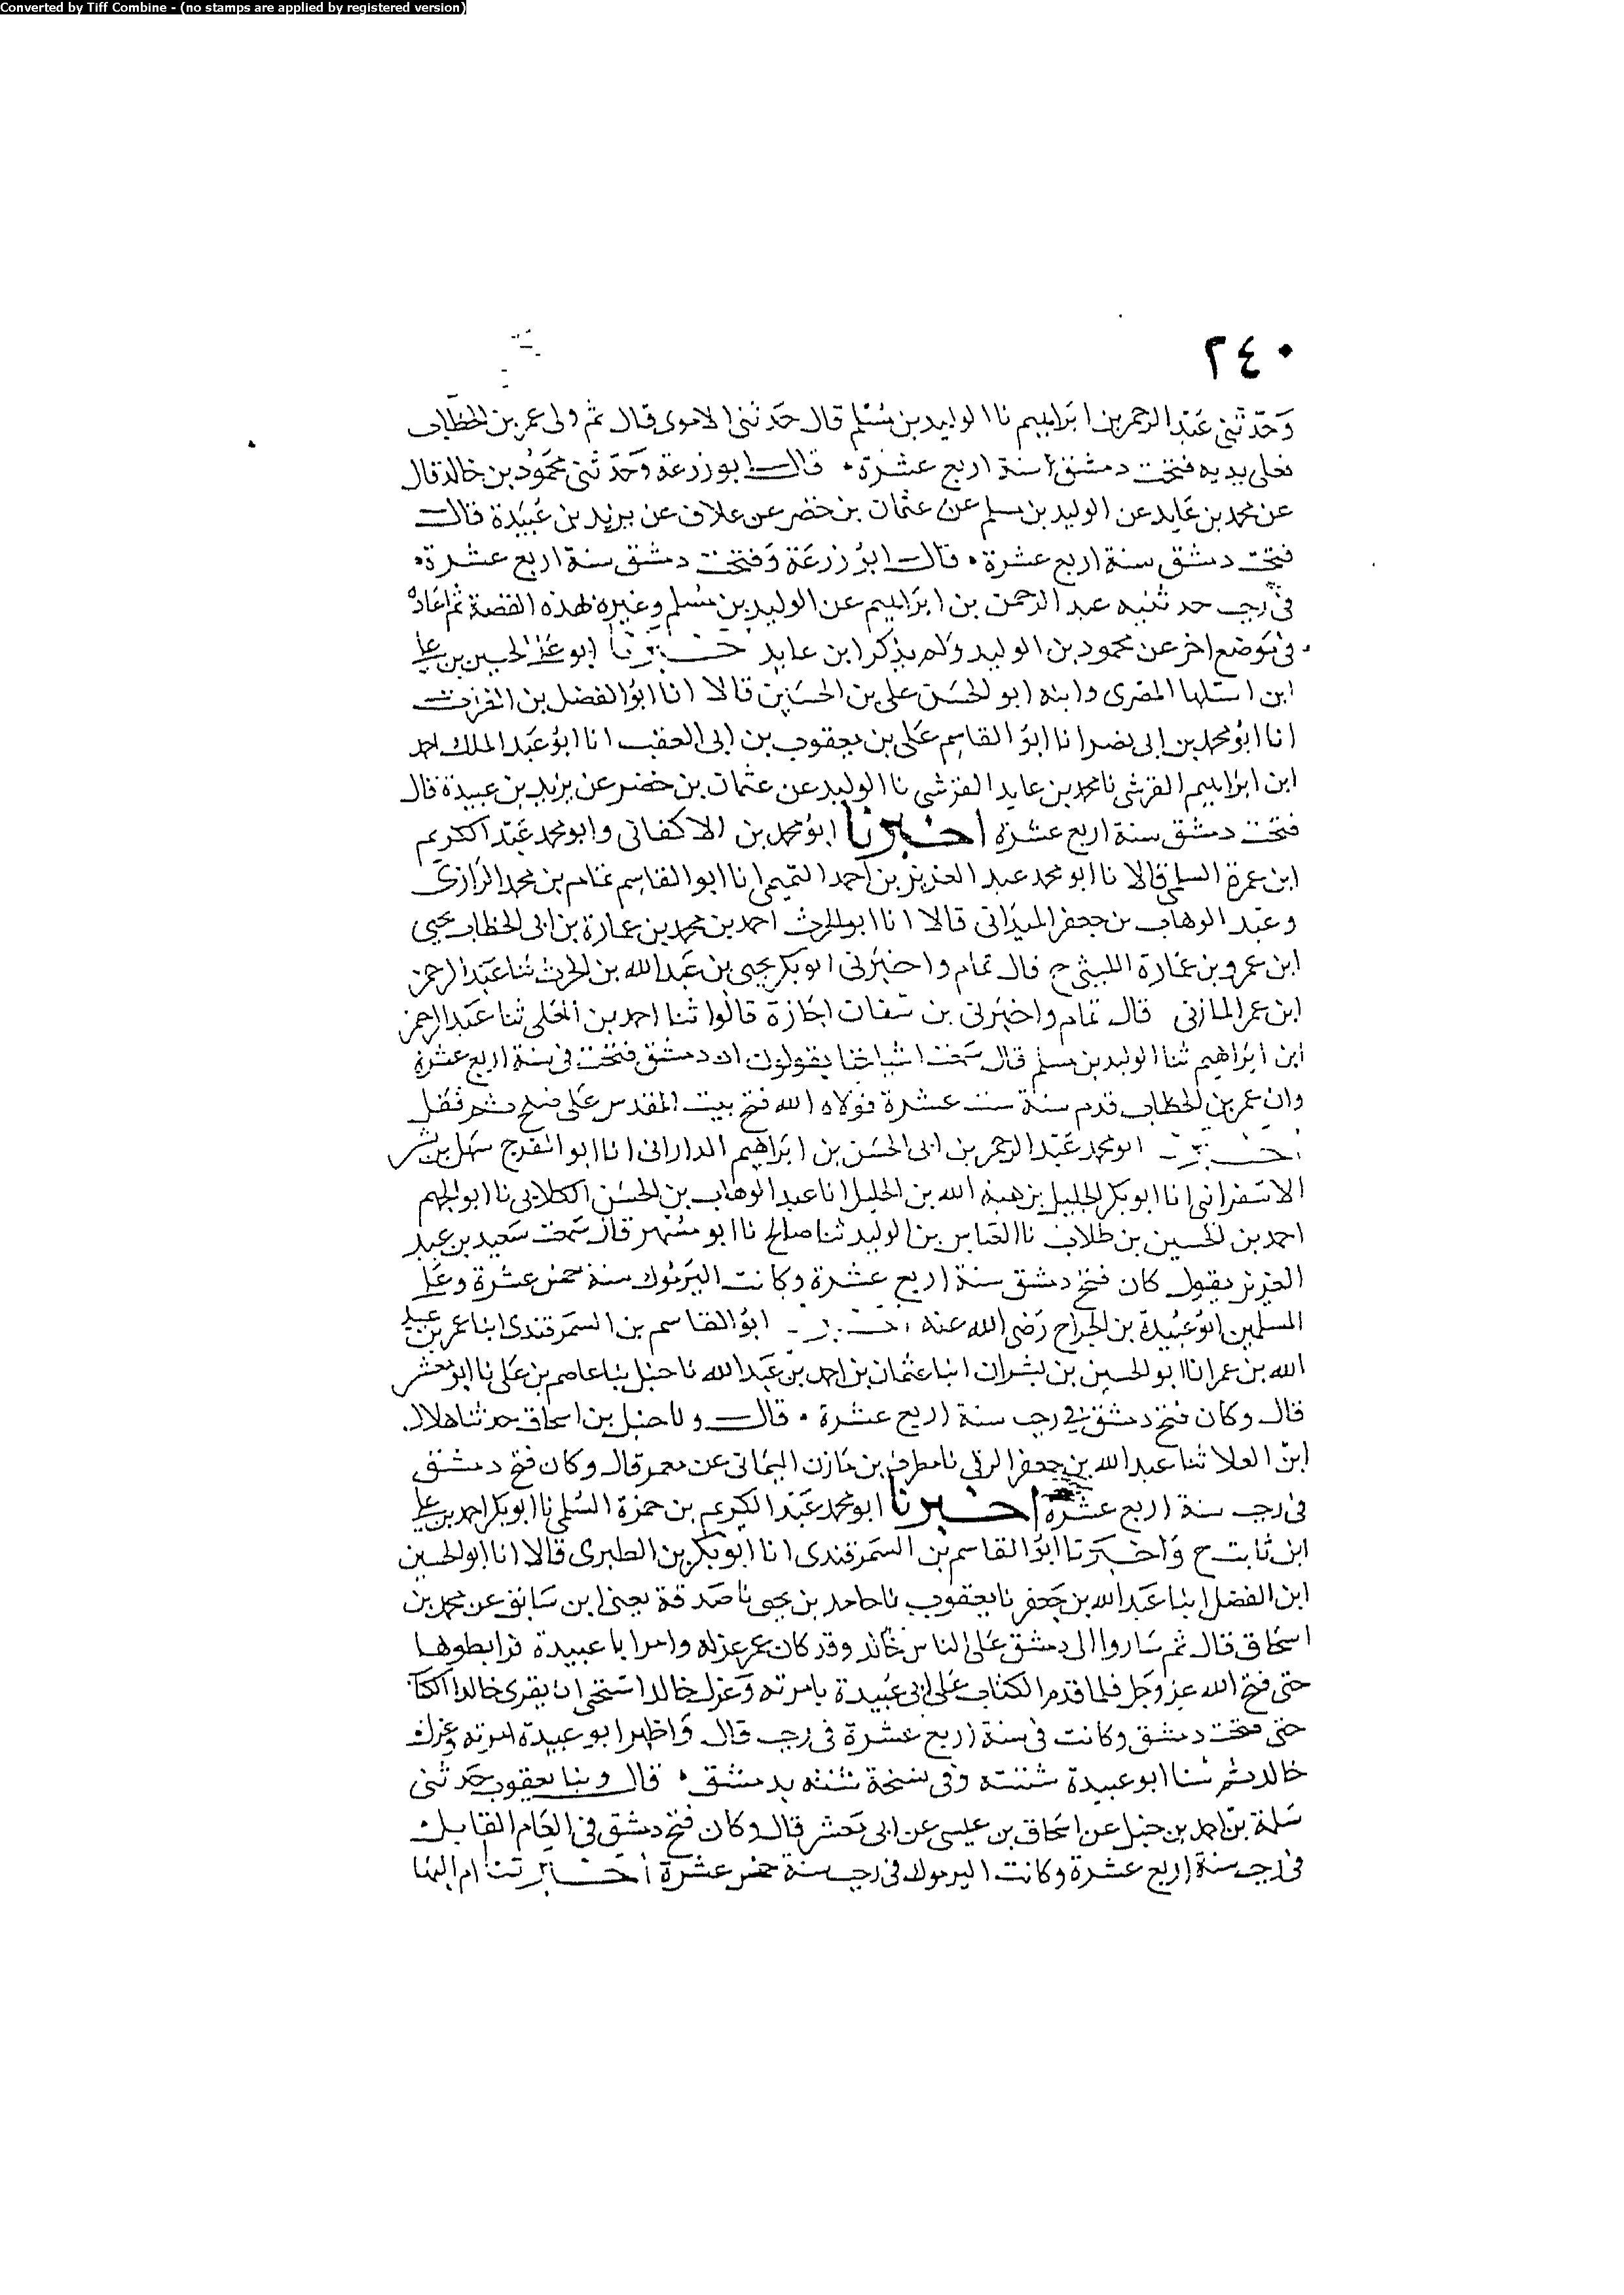 Converted by Tiff Combine - (no stamps are applied by registered version)
٢٤٠
وَحَدّثَني عَبْد الرحمن بن ابرَاهيم نا الوليد بن مُسْلم قال حَدثنى الاموى قال ثم ولى عمر بن الخطّاب
فعلى يديه فتحت دمشق سنة اربع عشرَة ٠ قال ابو زرعة وَحَدّثنى محمُود بن خالد قال
عن محمد بن عَايد عن الوليد بن مسلم عن عثمان بن خضر عن علاف عن يزيد بن عُبَيْدة قال
فتحت دمشق سنة اربع عشرة ٠ قال ابوُ زرعَة وَفتحت دمشق سنة اربع عشرة ٠
في رجب حدثنيه عبد الرحمن بن ابرَاهيم عن الوليد بن مُسلم وغيره بهذه القصة ثم اعَادهُ
في مَوضع اخر عن محمود بن الوليد وَلم يذكر ابن عايد خبرنا ابو الحسين بن علي
ابن اشليها المصرى وابنه ابو الحسَن على بن الحسَين قالا انا ابوُ الفضل بن الفرات
انا ابوُ محمد بن ابى نصر انا ابوُ القاسِم عَلى بن يعقوب بن ابى العقب انا ابوُ عَبد الملك احمد
ابن ابرَاهيم القرشي نا محمد بن عايد القرشي نا الوليد عن عثمان بن خضر عن يزيد بن عبيدة قال
فتحت دمشق سنة اربع عشرَة اخبرنا ابوُ محمد بن الاكفاني وابو محمد عَبْد الكريم
ابن حمزة السلمى قالا نا ابو محمد عبد العزيز بن احمد التميمى انا ابو القاسِم تمام بن محمد الرازى
وعبْد الوهاب بن جعفر الميدَانى قالا انا ابو الحرث احمد بن محمد بن عمارة بن ابى الخطاب يحيى
ابن عمرو بن عمَارة الليثى ح قال تمام واخبَرنى ابو بكر يحيى بن عَبد الله بن الحرث ثنا عَبْد الرحمن
ابن عمر المازنى قال تمام واخبَرنى بن اجَازة قالوا ثنا احمد بن المعَلى ثنا عَبْد الرحمن
ابن ابرَاهيم ثنا الوليد بن مسلم قال سَمعت اشياخنا يقولون ان دمشق فتحت في سَنة اربع عشرة
وان عمر بن الخطاب قدم سنة ست عشرة فولاه الله فتح بيت المقدس عَلى صلح ثم قفل
اخبرنا ابو محمد عَبْد الرحمن بن ابى الحسَن بن ابرَاهيم الدارانى انا ابو الفرج سَهل بن بشر
الاسَفرانى انا ابو بكر الجليل بن هبة الله بن الخليل انا عبد الوهاب بن الحسَن الكلابى نا ابو الجهم
احمد بن الحسين بن طلاب نا العبَاس بن الوليد ثنا صالح نا ابو مسْهر قال سَمعت سَعيد بن عبد
العزيز يقول كان فتح دمشق سنة اربع عشرة وكانت اليَرموك سنة خمس عشرة وعَلى
المسلمين ابوُ عُبَيدة بن الجراح رَضى الله عنه اخبرنا ابوُ القاسم بن السَمرقندى انبا عمر بن عبيد
الله بن عمر انا ابو الحسين بن بشران انبا عثمان بن احمد بن عَبد الله نا حنبل نبا عاصم بن عَلى نا ابو معشر
قال وكان فتح دمشق في رجب سنة اربع عشرة ٠ قال ونا حنبل بن اسحاق حدثنا هلال
ابن العلا ثنا عبد الله بن جعفر الرقي نا مطرف بن مَازن اليَمانى عن معمر قال وكان فتح دمشق
في رجب سنة اربع عشرَة اخبرنا ابو محمد عَبْد الكريم بن حمزة السُلمى نا ابو بكر احمد بن علي
ابن ثابت ح وَاخبَرنا ابوُ القاسم بن السَمرقندى انا ابو بكر بن الطبرى قالا انا ابو الحسين
ابن الفضل انبا عَبد الله بن جَعفر نا يعقوب نا حامد بن يحيى نا صَدقة يعنى ابن سَابق عن محمد بن
اسحَاق قال ثم سَاروا الى دمشق عَلى الناس خالد وقد كان عمر عزله وامر ابا عبيدة فرابطوها
حتى فتح الله عز وجَل فلما قدم الكتاب عَلى ابى عُبَيدة بامرته وَعزل خالد استحى ان يقرى خالدا الكتاب
حتى فتحت دمشق وكانت في سنة اربع عشرة في رجب قال وَاظهر ابو عبيدة امرته وعزل
خالد ثم شتا ابو عبيدة شتته وَفي نسخة شتته بدمشق ٠ قال ونبا يعقوب حَدثنى
سَلمة بن احمد بن حنبل عن اسحَاق بن عيسى عن ابى مَعشر قال وكان فتح دمشق في العَام القابل
في رجب سنة اربع عشرة وكانت اليرموك في رجب سنة خمس عشرة اخبرتنا ام البها